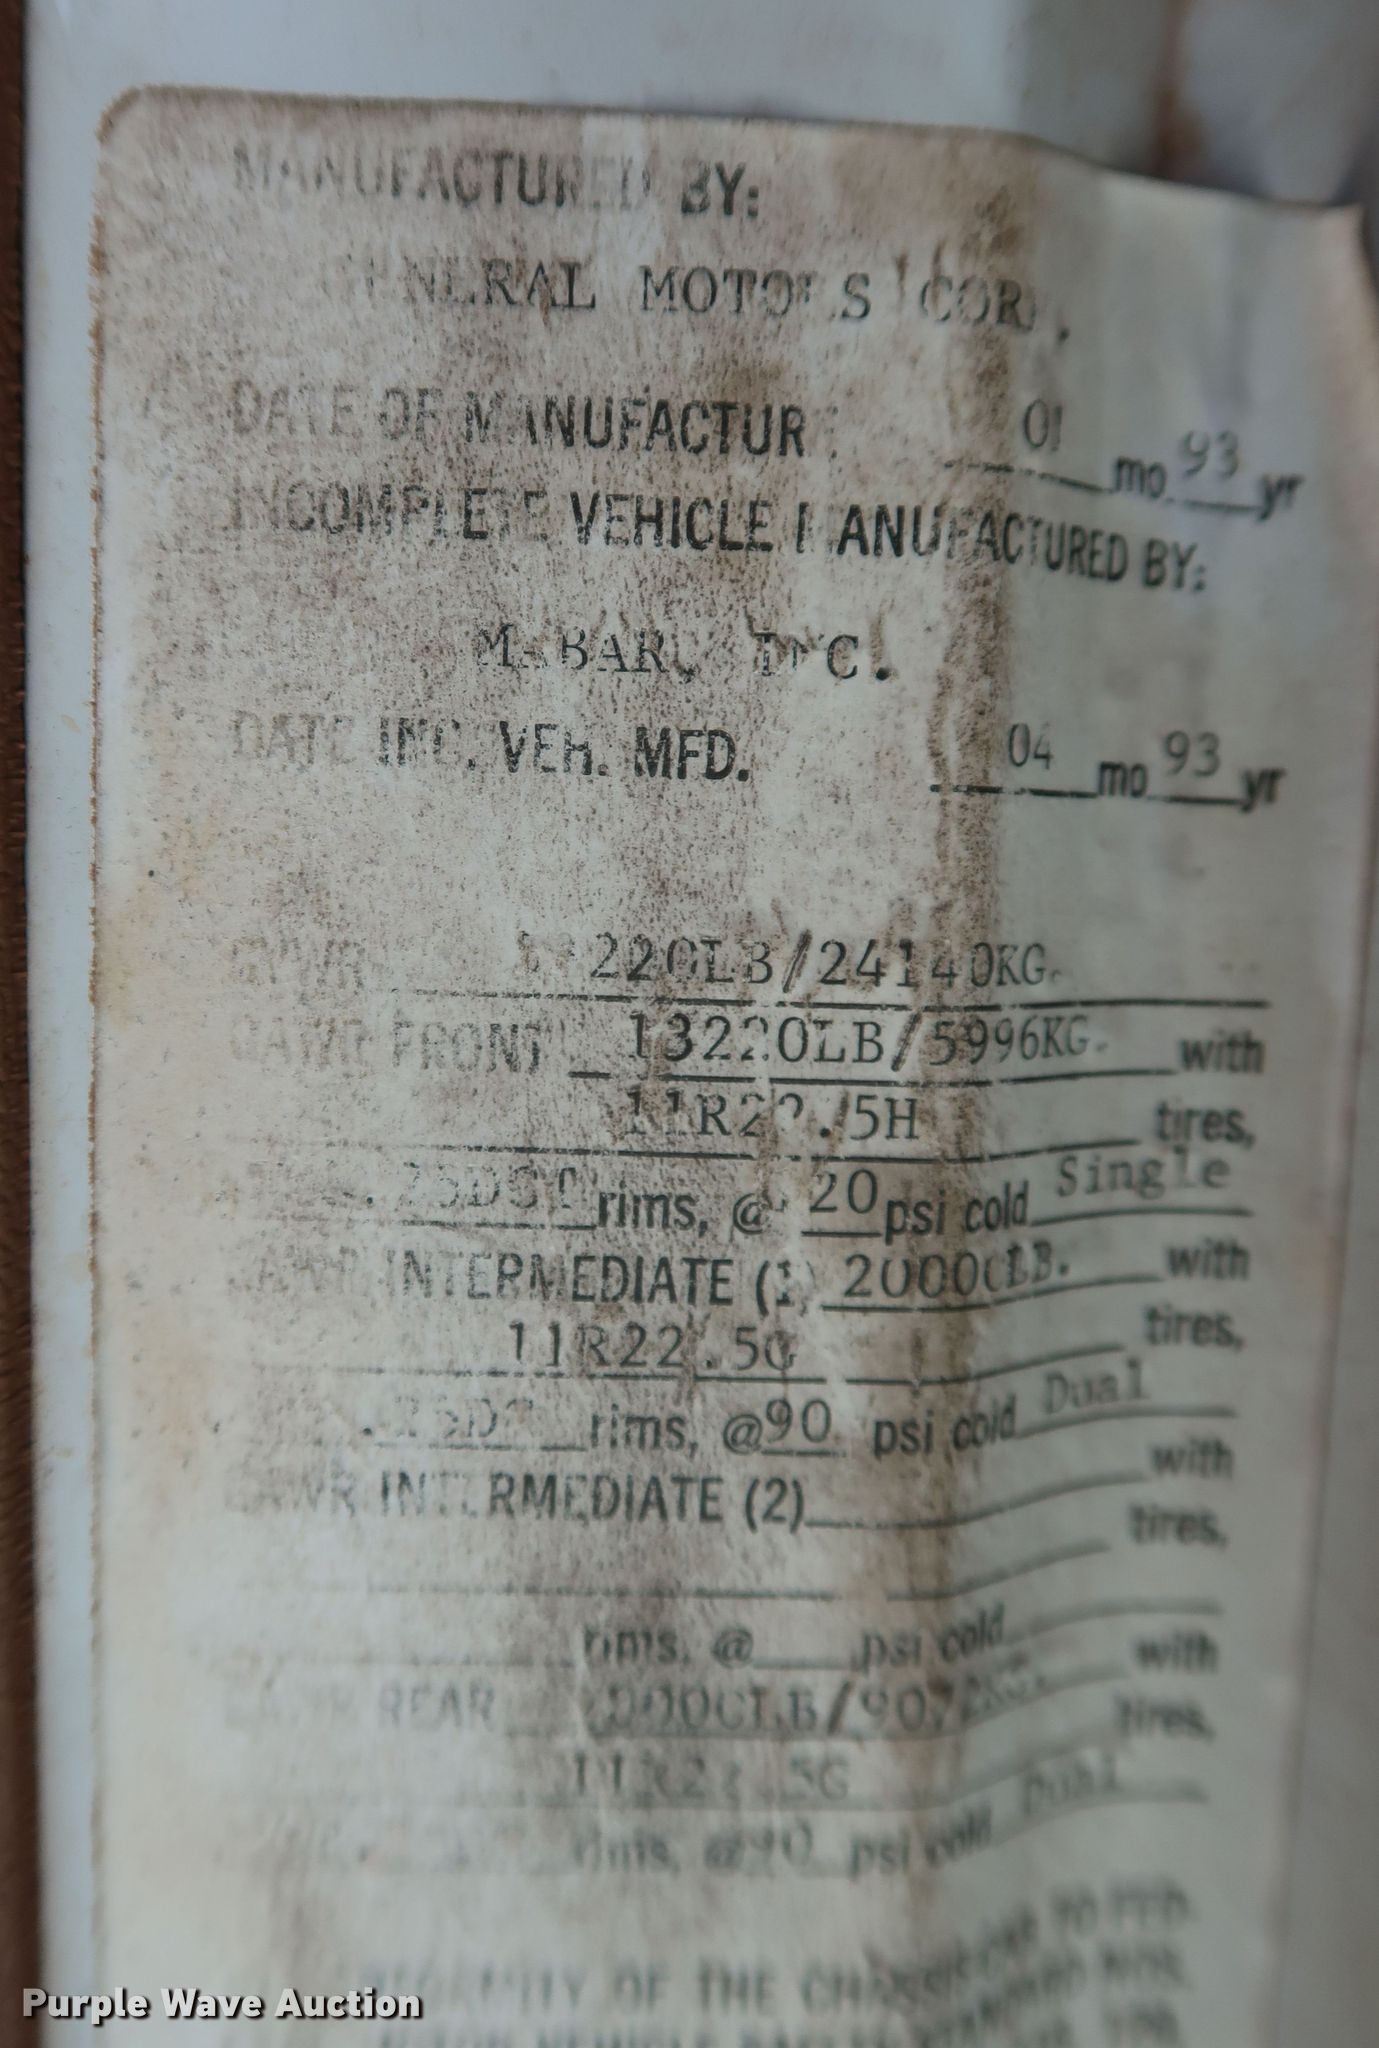 MANUFACTURED BY:
GENERAL MOTORS CORP.
DATE OF MANUFACTURE 01 mo 93 yr
INCOMPLETE VEHICLE MANUFACTURED BY:
INC.
DATE INC. VEH. MFD. 04 mo 93 yr
GVWR 53220LB/24140KG.
GAWR FRONT 13220LB/5996KG. with
11R22.5H tires,
rims, @ 120 psi cold Single
GAWR INTERMEDIATE (1) 20000LB. with
11R22.5G tires,
rims, @ 90 psi cold Dual
GAWR INTERMEDIATE (2) with
tires,
rims, @ psi cold
GAWR REAR 20000LB/9072KG. with
11R22.5G tires,
rims, @ 90 psi cold Dual
OF THE CHASSIS TO FED.
Purple Wave Auction